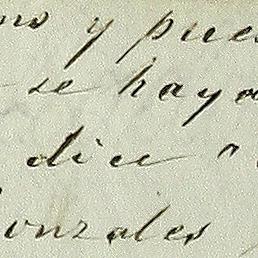 y pues
se haya
dice
Gonzales